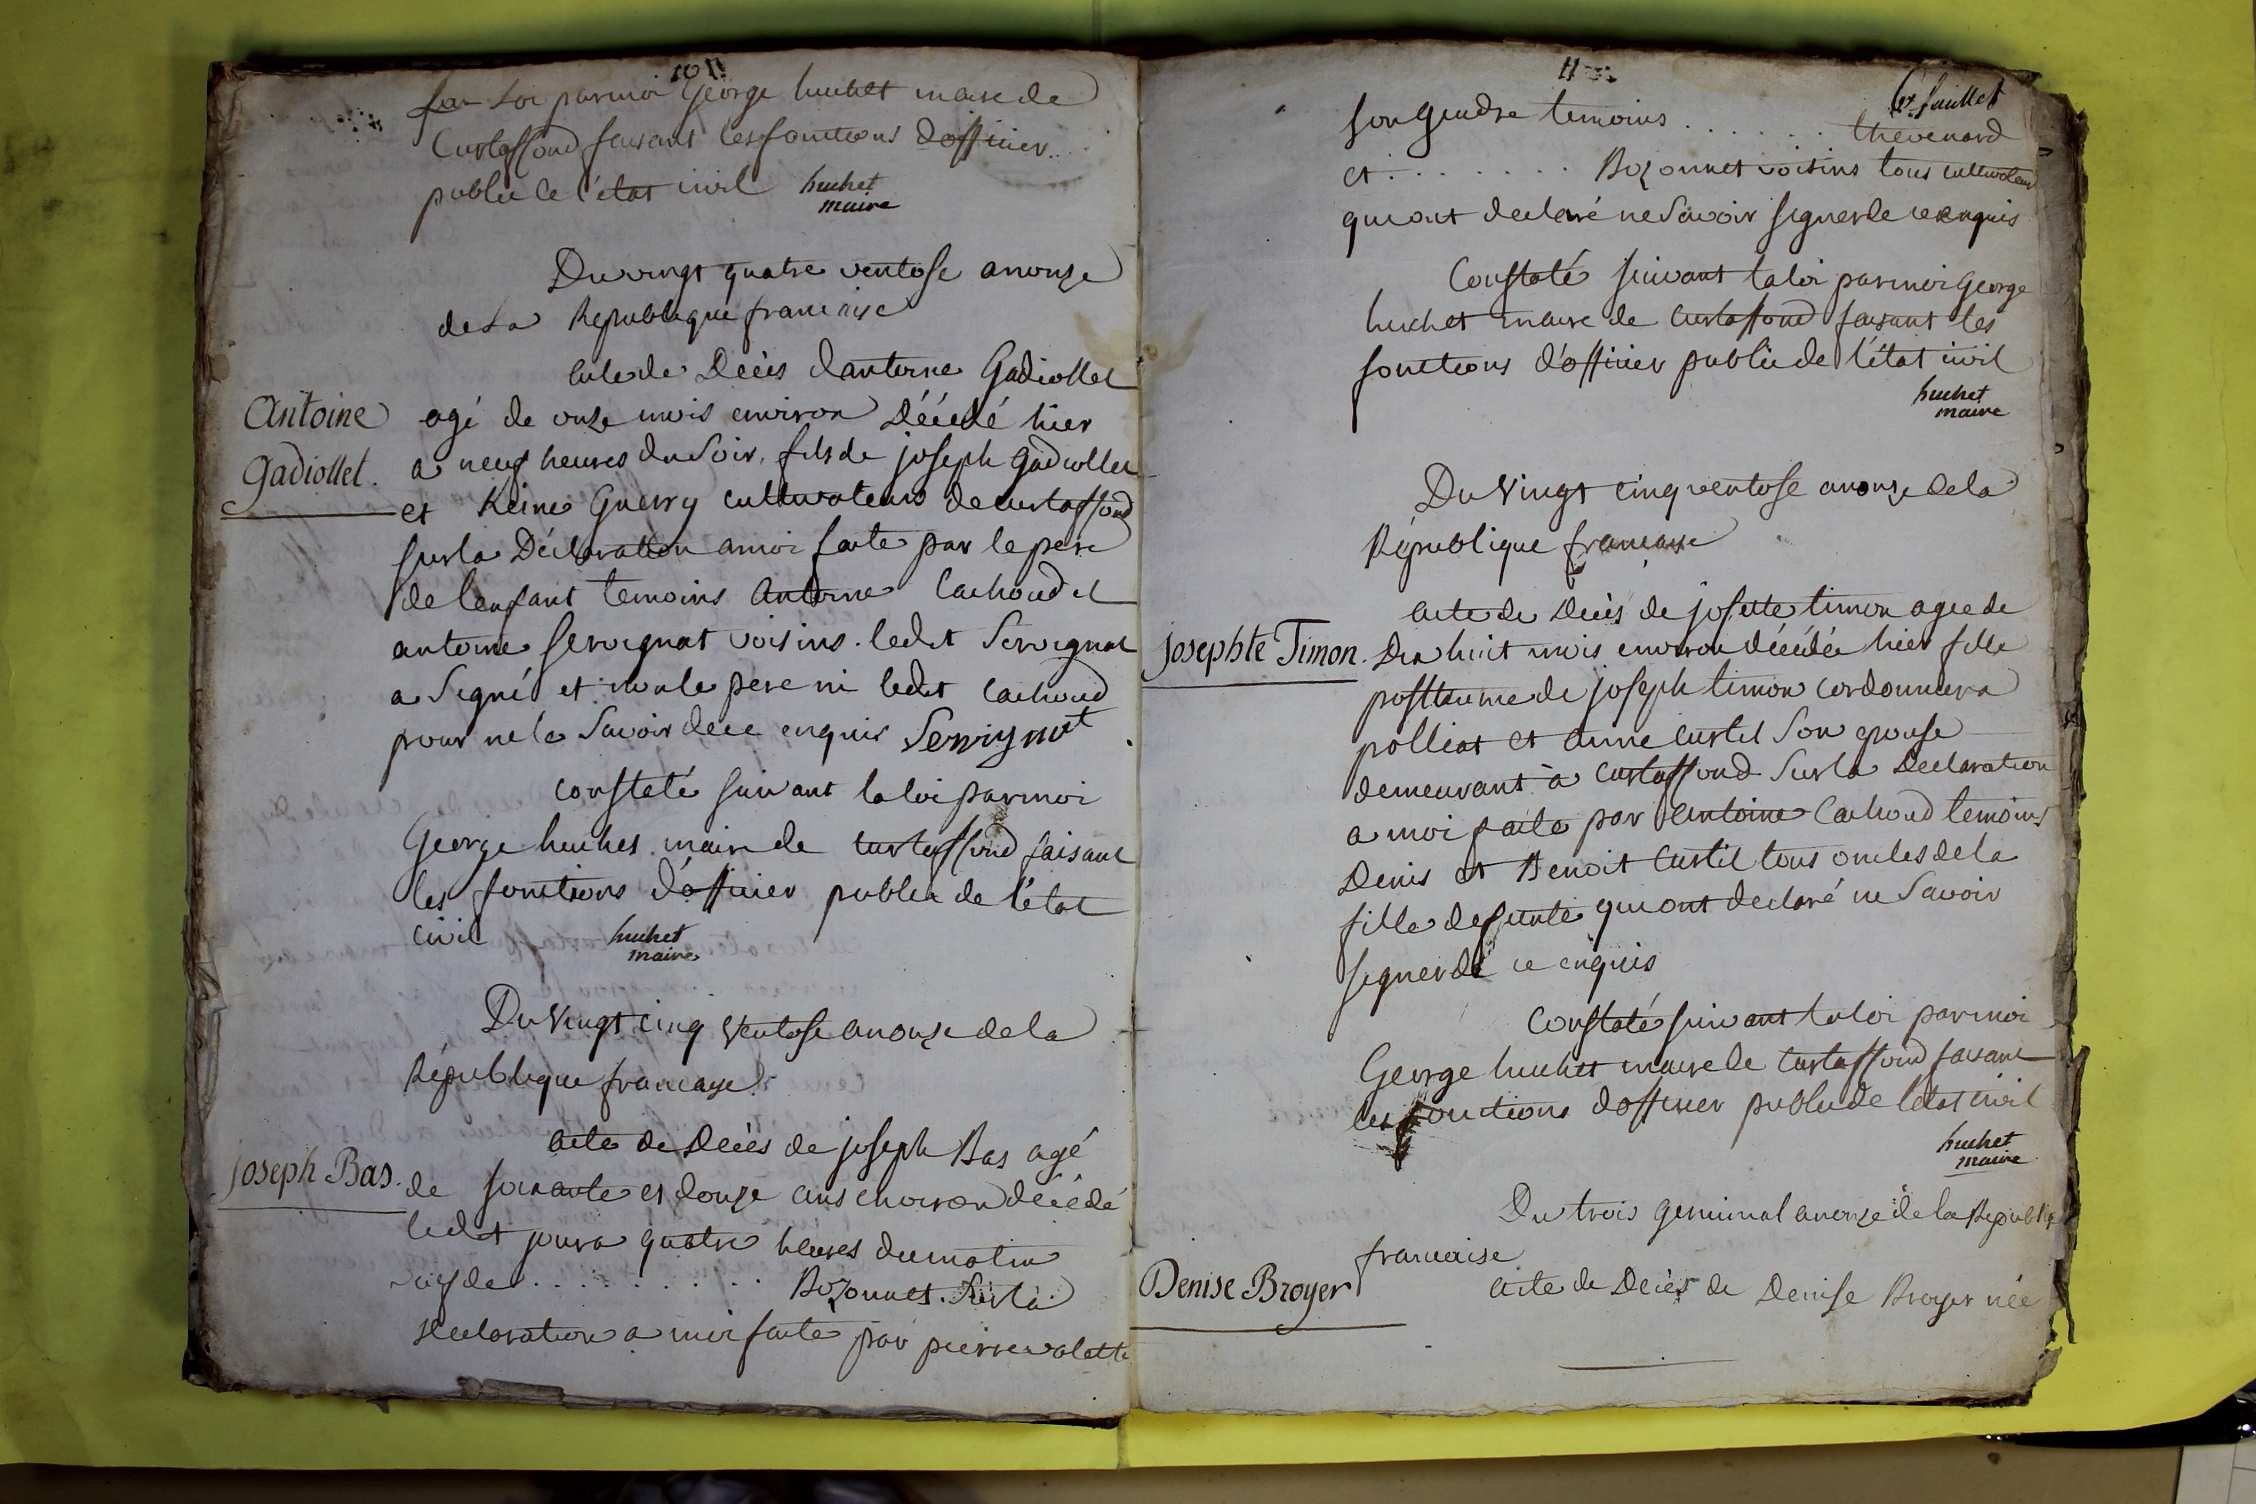 10
la Loi par moi George huchet maire de
Curtaffond faisant les fonctions d'officier
public de l'état civil huchet
maire
Du vingt quatre ventose an onze
de La Republique francaise
Acte de Décès d'antoine Gadiollet
Antoine
Gadiollet.
agé de onze mois environ Décédé hier
a neuf heures du Soir, fils de joseph Gadiollet
et Reine Guerry cultivateurs de curtaffond
sur la Déclaration a moi faite par le pere
de l'enfant temoins antoine Cachoud et
antoine Servignat voisins. ledit Servignat
a Signé et non le pere ni ledit Cachoud
pour ne le Savoir de ce enquis Servignat
constaté suivant la loi par moi
George huchet maire de curtaffond faisant
les fonctions d'officier public de l'état
civil huchet
maire
Du Vingt cinq Ventose an onze de la
République francaise
Joseph Bas.
acte de Décès de joseph Bas agé
de soixante et douze ans environ décédé
ledit jour a quatre heures du matin
veuf de . . . . . . . . . . Bozonnet. Sur la
declaration a moi faite par pierre valette
11
6e. feuillet
son gendre temoins . . . . . . . thevenard
et . . . . . . . Bozonnet voisins tous cultivateurs
qui ont declaré ne Savoir signer de ce enquis
Constaté suivant la loi par moi George
huchet maire de Curtaffond faisant les
fonctions d'officier public de l'état civil
huchet
maire
Du Vingt cinq ventose an onze de la
République francaise
Josephte Timon.
acte de Décès de josette timon agee de
Dix huit mois environ décédée hier fille
posthume de joseph timon cordonnier a
polliat et anne curtil Son epouse
demeurant à Curtaffond Sur la Declaration
a moi faite par antoine Cachoud temoins
Denis et Benoit Curtil tous oncles de la
fille defunte qui ont declaré ne Savoir
signer de ce enquis
Constaté suivant la loi par moi
George huchet maire de Curtaffond faisant
les fonctions d'officier public de l'état civil
huchet
maire
Du trois germinal an onze de la Republiq
francaise
Denise Broyer
acte de Décès de Denise Broyer née